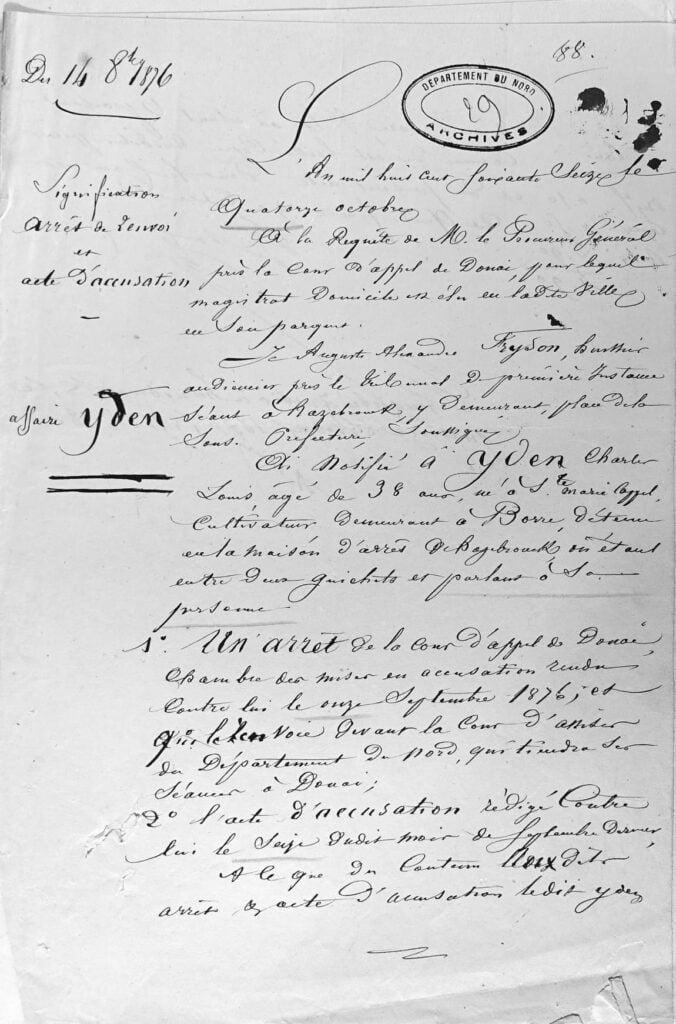 Du 14 8bre 1876
88.
DÉPARTEMENT DU NORD
29
ARCHIVES
Signification
arrêt de renvoi
et
acte d'accusation
affaire yden
L'An mil huit cent soixante Seize le
Quatorze octobre
A la Requête de M. le Procureur Général
près la Cour d'appel de Douai, pour lequel
magistrat Domicile est élu en ladite Ville
en Son parquet.
Je Auguste Alexandre Frydon, huissier
audiencier près le Tribunal de première Instance
Séant à Hazebrouck, y Demeurant, place de la
Sous-Préfecture, Soussigné
Ai Notifié à yden Charles
Louis âgé de 38 ans, né à Ste marie Cappel,
Cultivateur demeurant à Borre, détenu
en la maison d'arrêt d'hazebrouck où étant
entre deux guichets et parlant à Sa
personne
1o. Un arrêt de la Cour d'appel de Douai,
Chambre des mises en accusation rendu
Contre lui le onze Septembre 1876, et
qui le renvoie devant la Cour d'assises
du Département du Nord, qui tiendra Ses
Séances à Douai;
2o l'acte d'accusation rédigé Contre
lui le Seize dudit mois de Septembre Dernier,
A ce que du Contenu auxdits
arrêt & acte d'accusation ledit yden